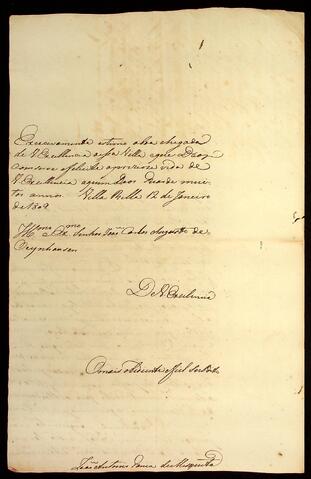 Excessivamente estimo aboa chegada
de V Excellencia aessa Villa eque Deos
conserve afelis e preciosa vida de
V Excellencia aquem Deos Guarde mui-
tos annos Villa Bella 12 de Janeiro
de 1809
Illmo Exmo Senhor João Carlos Augusto de
Oeynhausen
De V Excellencia
Omais obediente efiel Subdito
João Antonio de Mesquita